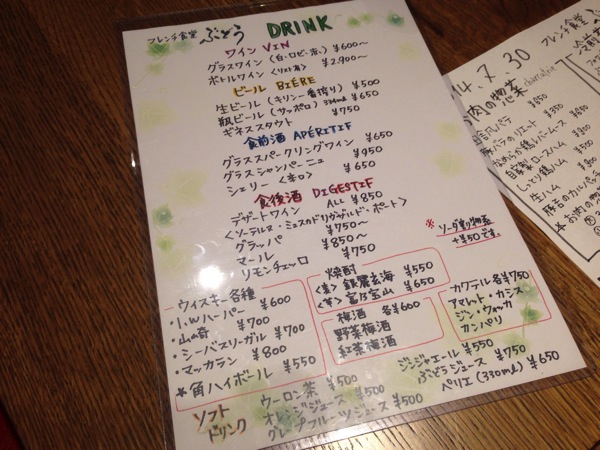 フレンチ食堂 ぶどう DRINK
ワイン VIN
グラスワイン(白・ロゼ・赤) ¥600～
ボトルワイン <リスト有> ¥2,900～
ビール BIÈRE
生ビール(キリン一番搾り) ¥500
瓶ビール(サッポロ) 334ml ¥650
ギネススタウト ¥750
食前酒 APÉRITIF
グラススパークリングワイン ¥650
グラスシャンパーニュ ¥950
シェリー <辛口> ¥650
食後酒 DIGESTIF
デザートワイン ALL ¥850
<ソーテルヌ・ミュスカドリヴザルト・ポート>
グラッパ ¥750～
マール ¥850～
リモンチェッロ ¥750
※ソーダ割り物系
+¥50です。
ウィスキー各種
・I.W.ハーパー ¥600
・山崎 ¥700
・シーバスリーガル ¥700
・マッカラン ¥800
*角ハイボール ¥550
焼酎
<麦> 銀麗玄海 ¥550
<芋> 富乃宝山 ¥650
梅酒 各¥600
野菜梅酒
紅茶梅酒
カクテル各¥750
アマレット・カシス
ジン・ウォッカ
カンパリ
ソフト
ドリンク
ウーロン茶 ¥500
オレンジジュース ¥500
グレープフルーツジュース ¥500
ジンジャエール ¥550
ぶどうジュース ¥750
ペリエ(330ml) ¥650
14.7.30
フレンチ食堂
お肉の惣菜
豚バラのリエート ¥350
自家製ロースハム
しっとり鶏ハム
生ハム